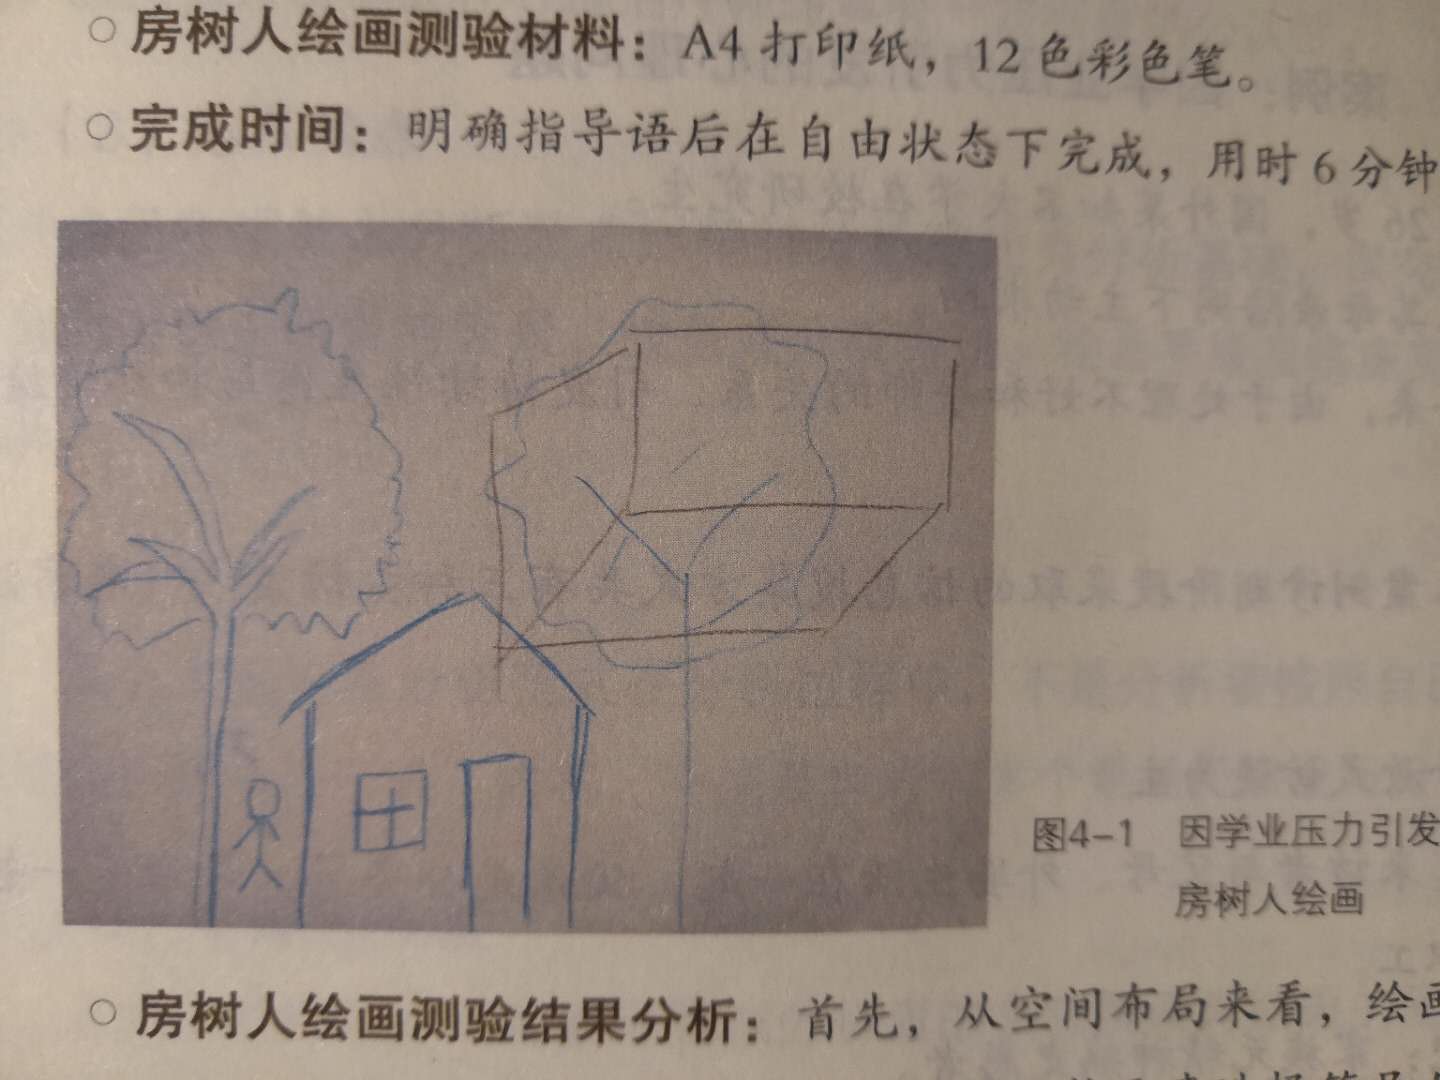 ○ 房树人绘画测验材料：A4 打印纸，12 色彩色笔。
○ 完成时间：明确指导语后在自由状态下完成，用时 6 分钟
图4-1 因学业压力引发
房树人绘画
○ 房树人绘画测验结果分析：首先，从空间布局来看，绘画